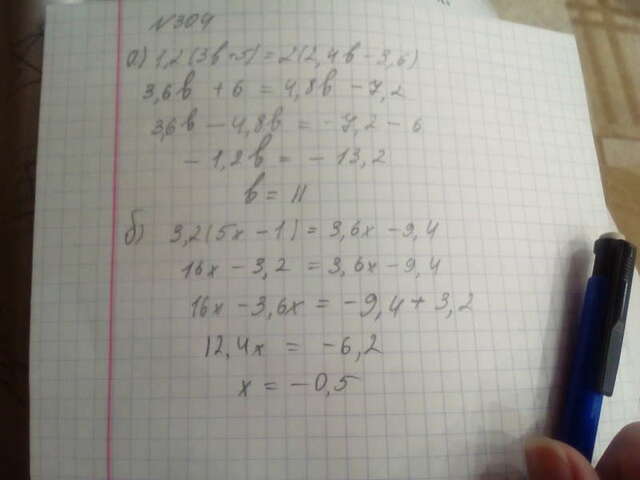 №304
а) 1,2(3в+5)=2(2,4в-3,6)
3,6в +6 = 4,8в -7,2
3,6в - 4,8в = -7,2 - 6
-1,2в = -13,2
в = 11
б) 3,2(5х-1)=3,6х-9,4
16х-3,2 =3,6х-9,4
16х-3,6х = -9,4+3,2
12,4х = -6,2
х = -0,5